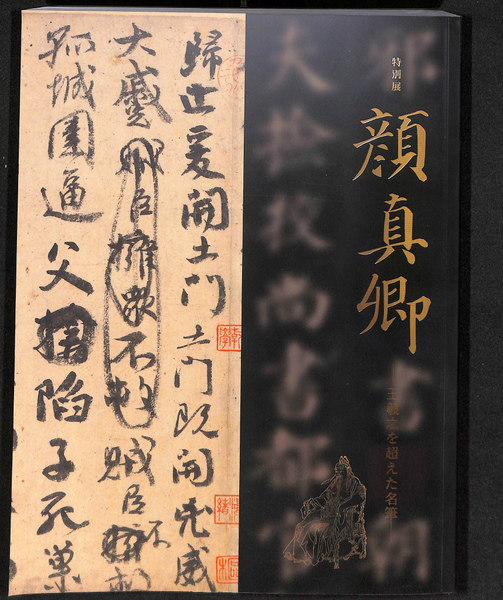 特別展
顔真卿
王羲之を超えた名筆
歸止爰開土門土門既開兇威
大蹙賊臣擁眾不救賊臣不擁
孤城圍逼父擒陷子死巢